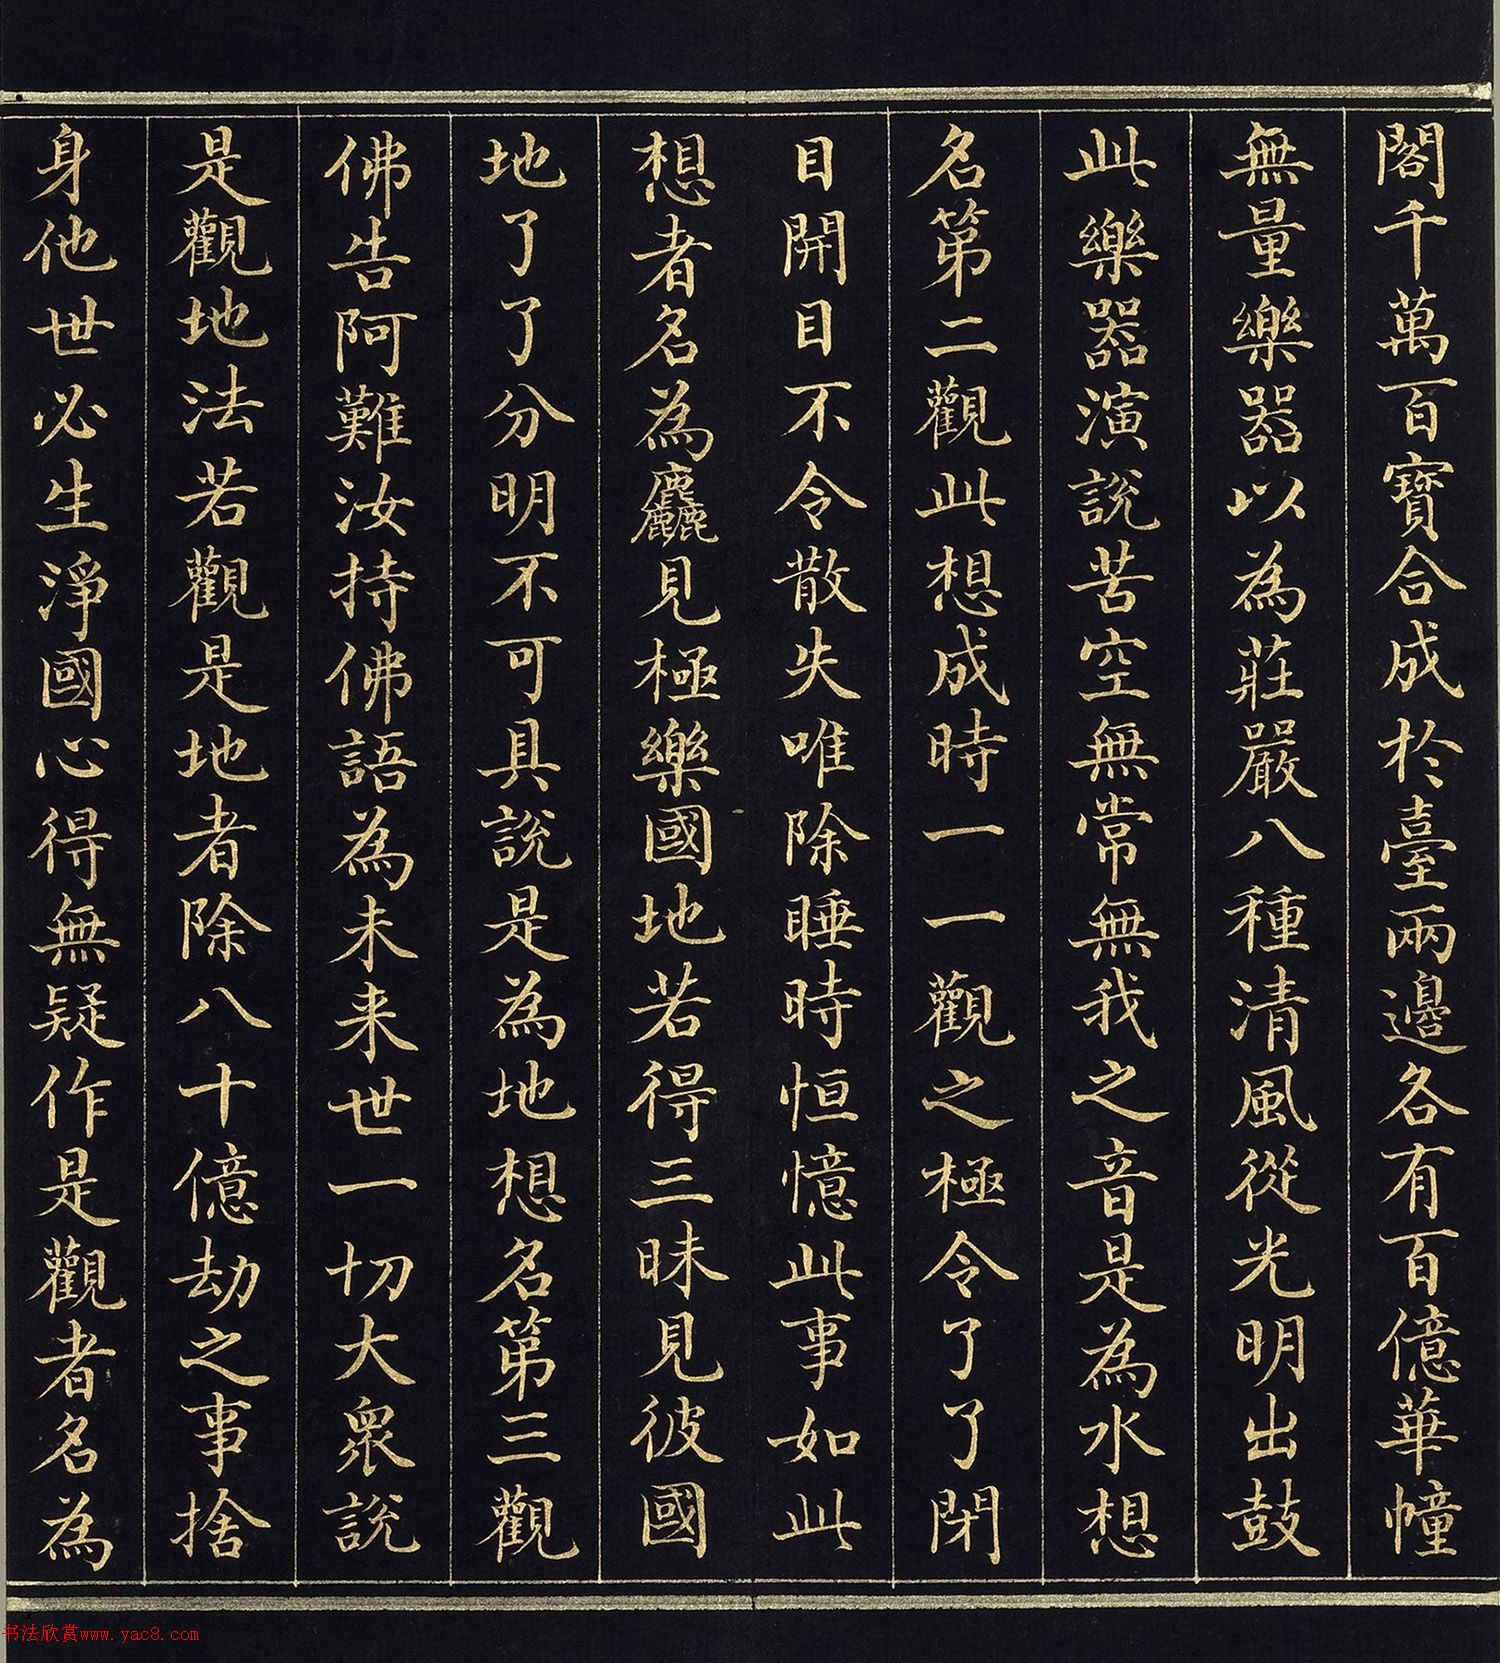 閣千萬百寶合成於臺兩邊各有百億華幢
無量樂器以為莊嚴八種清風從光明出鼓
此樂器演說苦空無常無我之音是為水想
名第二觀此想成時一一觀之極令了了閉
目開目不令散失唯除睡時恒憶此事如此
想者名為麤見極樂國地若得三昧見彼國
地了了分明不可具說是為地想名第三觀
佛告阿難汝持佛語為未来世一切大眾說
是觀地法若觀是地者除八十億劫之事捨
身他世必生淨國心得無疑作是觀者名為
书法欣赏www.yac8.com